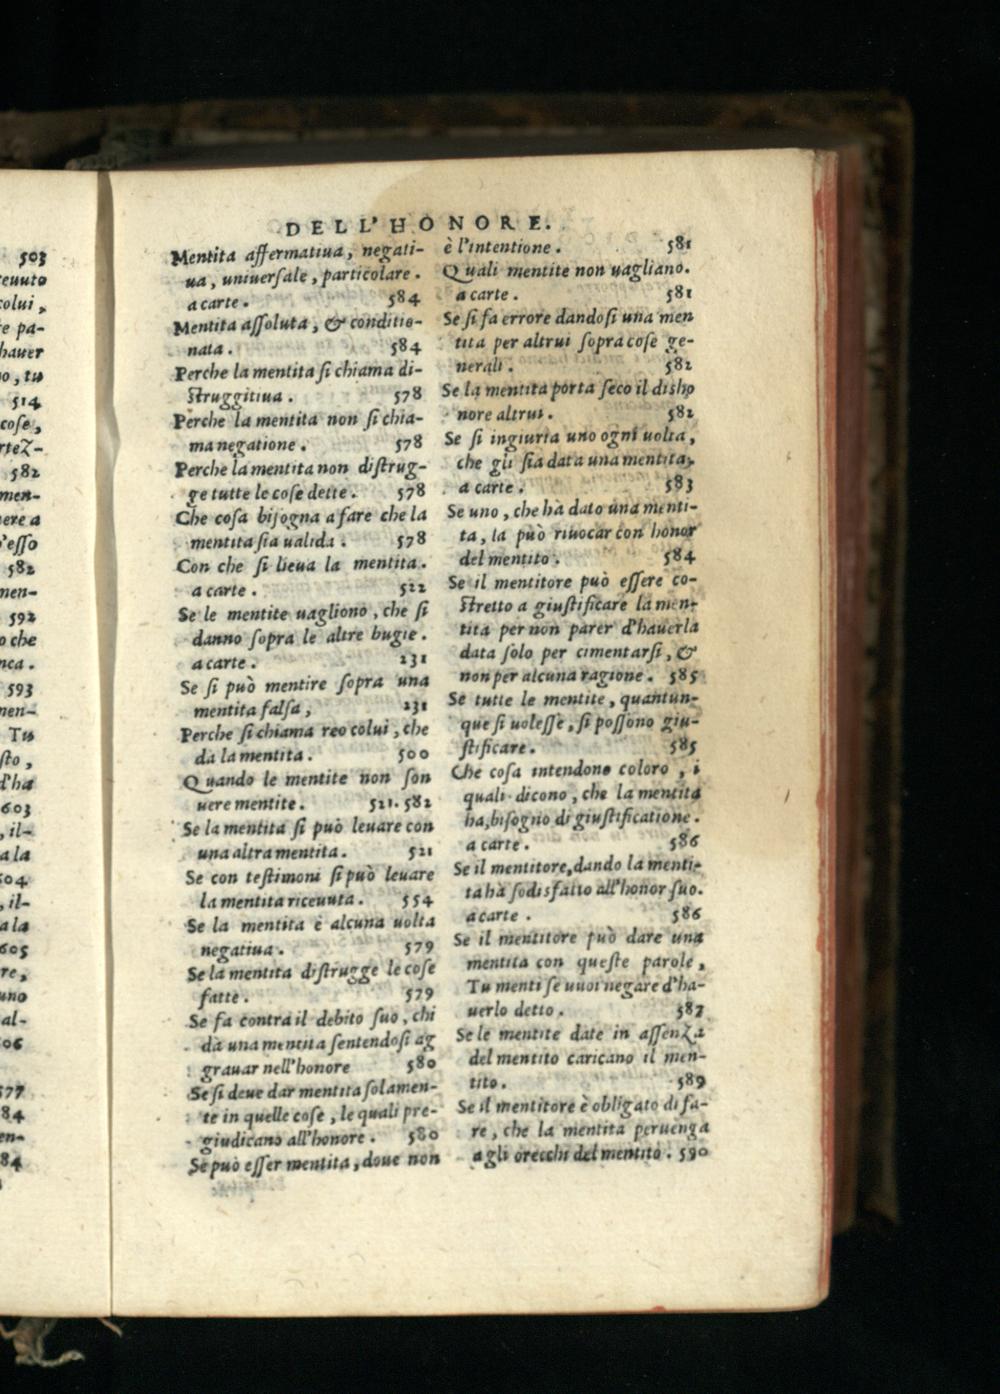 503
teuuto
colui,
re pa-
hauer
no, tu
514
cose,
rteZ-
582
men-
ere a
d'esso
582
men-
592
o che
nca.
593
men-
Tu
sto,
d'ha
603
, il-
a la
604
, il-
a la
605
re,
uno
al-
06
577
84
en-
84
DELL'HONORE.
Mentita affermatiua, negati-
ua, uniuersale, particolare.
a carte. 584
Mentita assoluta, & conditio-
nata. 584
Perche la mentita si chiama di-
struggitiua. 578
Perche la mentita non si chia-
ma negatione. 578
Perche la mentita non distrug-
ge tutte le cose dette. 578
Che cosa bisogna a fare che la
mentita sia ualida. 578
Con che si lieua la mentita.
a carte. 522
Se le mentite uagliono, che si
danno sopra le altre bugie.
a carte. 231
Se si può mentire sopra una
mentita falsa, 231
Perche si chiama reo colui, che
dà la mentita. 500
Quando le mentite non son
uere mentite. 521. 582
Se la mentita si può leuare con
una altra mentita. 521
Se con testimoni si può leuare
la mentita riceuuta. 554
Se la mentita è alcuna uolta
negatiua. 579
Se la mentita distrugge le cose
fatte. 579
Se fa contra il debito suo, chi
dà una mentita sentendosi ag
grauar nell'honore 580
Se si deue dar mentita solamen-
te in quelle cose, le quali pre-
giudicano all'honore. 580
Se può esser mentita, doue non
è l'intentione. 581
Quali mentite non uagliano.
a carte. 581
Se si fa errore dandosi una men
tita per altrui sopra cose ge-
nerali. 582
Se la mentita porta seco il disho
nore altrui. 582
Se si ingiuria uno ogni uolta,
che gli sia data una mentita,
a carte. 583
Se uno, che hà dato una menti-
ta, la può riuocar con honor
del mentito. 584
Se il mentitore può essere co-
stretto a giustificare la men-
tita per non parer d'hauerla
data solo per cimentarsi, &
non per alcuna ragione. 585
Se tutte le mentite, quantun-
que si uolesse, si possono giu-
stificare. 585
Che cosa intendono coloro, i
quali dicono, che la mentita
ha bisogno di giustificatione.
a carte. 586
Se il mentitore, dando la menti-
ta hà sodisfatto all'honor suo.
a carte. 586
Se il mentitore può dare una
mentita con queste parole,
Tu menti se uuoi negare d'ha-
uerlo detto. 587
Se le mentite date in assenZa
del mentito caricano il men-
tito. 589
Se il mentitore è obligato di fa-
re, che la mentita peruenga
a gli orecchi del mentito. 590